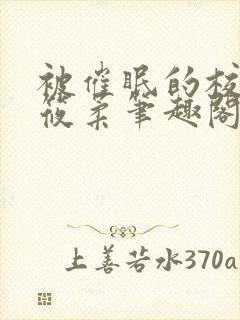 被催眠的校
筱柔笔趣阁
上善若水370a